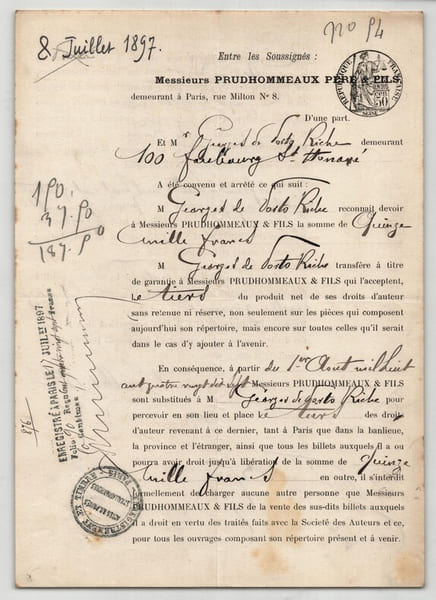 8 Juillet 1897.
no 84
Entre les Soussignés :
Messieurs PRUDHOMMEAUX PÈRE & FILS,
demeurant à Paris, rue Milton No 8.
RÉPUBLIQUE FRANÇAISE
D'une part.
Et Mr Georges de Porto Riche demeurant
100 faubourg St Honoré
A été convenu et arrêté ce qui suit :
M Georges de Porto Riche reconnait devoir
à Messieurs PRUDHOMMEAUX & FILS la somme de Quinze
mille francs
M Georges de Porto Riche transfère à titre
de garantie à Messieurs PRUDHOMMEAUX & FILS qui l'acceptent,
le tiers du produit net de ses droits d'auteur
sans retenue ni réserve, non seulement sur les pièces qui composent
aujourd'hui son répertoire, mais encore sur toutes celles qu'il serait
dans le cas d'y ajouter à l'avenir.
En conséquence, à partir du 1er Août mil huit
cent quatre vingt dix sept Messieurs PRUDHOMMEAUX & FILS
sont substitués à M Georges de Porto Riche pour
percevoir en son lieu et place le tiers des droits
d'auteur revenant à ce dernier, tant à Paris que dans la banlieue,
la province et l'étranger, ainsi que tous les billets auxquels il a ou
pourra avoir droit jusqu'à libération de la somme de Quinze
mille francs en outre, il s'interdit
formellement de charger aucune autre personne que Messieurs
PRUDHOMMEAUX & FILS de la vente des sus-dits billets auxquels
il a droit en vertu des traités faits avec la Societé des Auteurs et ce,
pour tous les ouvrages composant son répertoire présent et à venir.
150.
37.50
187.50
ENREGISTRÉ A PARIS LE JUILLET 1897
Folio
Reçu
876